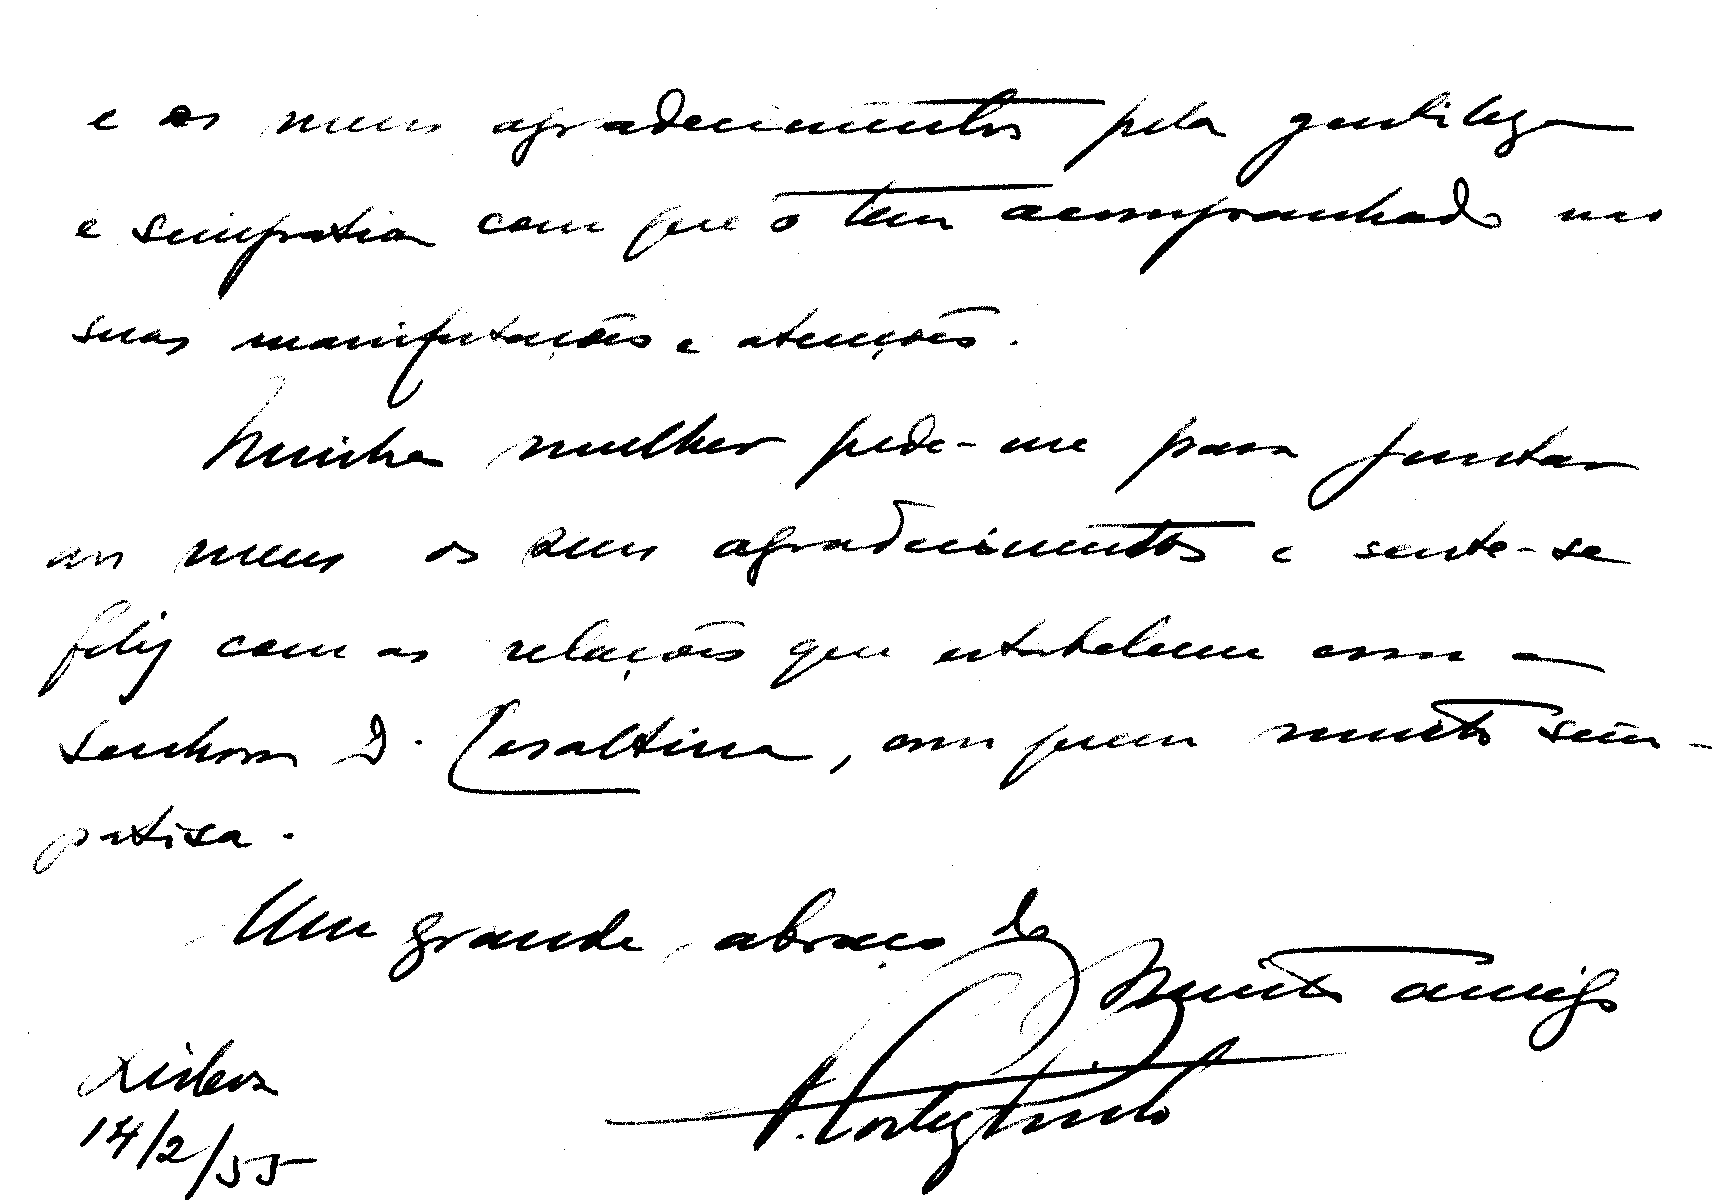 e os meus agradecimentos pela gentileza
e simpatia com que o tem acompanhado nas
suas manifestações e atenções.
Minha mulher pede-me para juntar
aos meus os seus agradecimentos e sente-se
feliz com as relações que estabeleceu com a
Senhora D. Cesaltina, com quem muito sim-
patisa.
Um grande abraço do
Muito amigo
A. Cortez Pinto
Lisboa
14/2/55